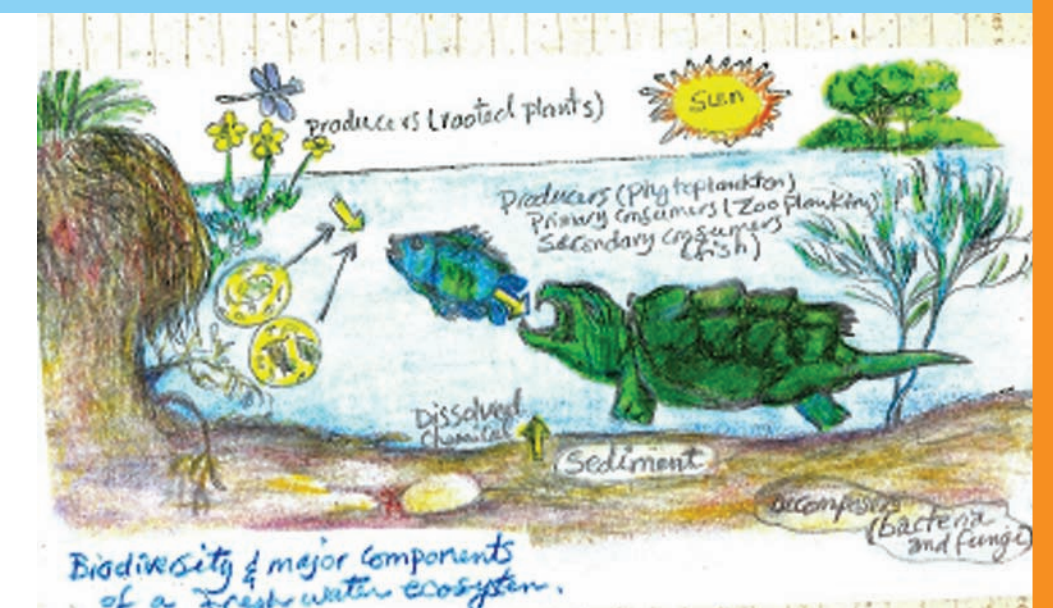 Producers (rooted plants)
Sun
Producers (Phytoplankton)
Primary Consumers (Zooplankton)
Secondary Consumers
(fish)
Dissolved
Chemical
Sediment
decomposers
(bacteria
and fungi)
Biodiversity & major components
of a Freshwater ecosystem.